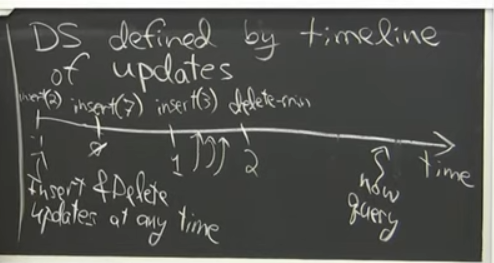 DS defined by timeline
of updates
insert(2) insert(7) insert(3) delete-min
-1 0 1 2 time
Insert & Delete
updates at any time
now
query